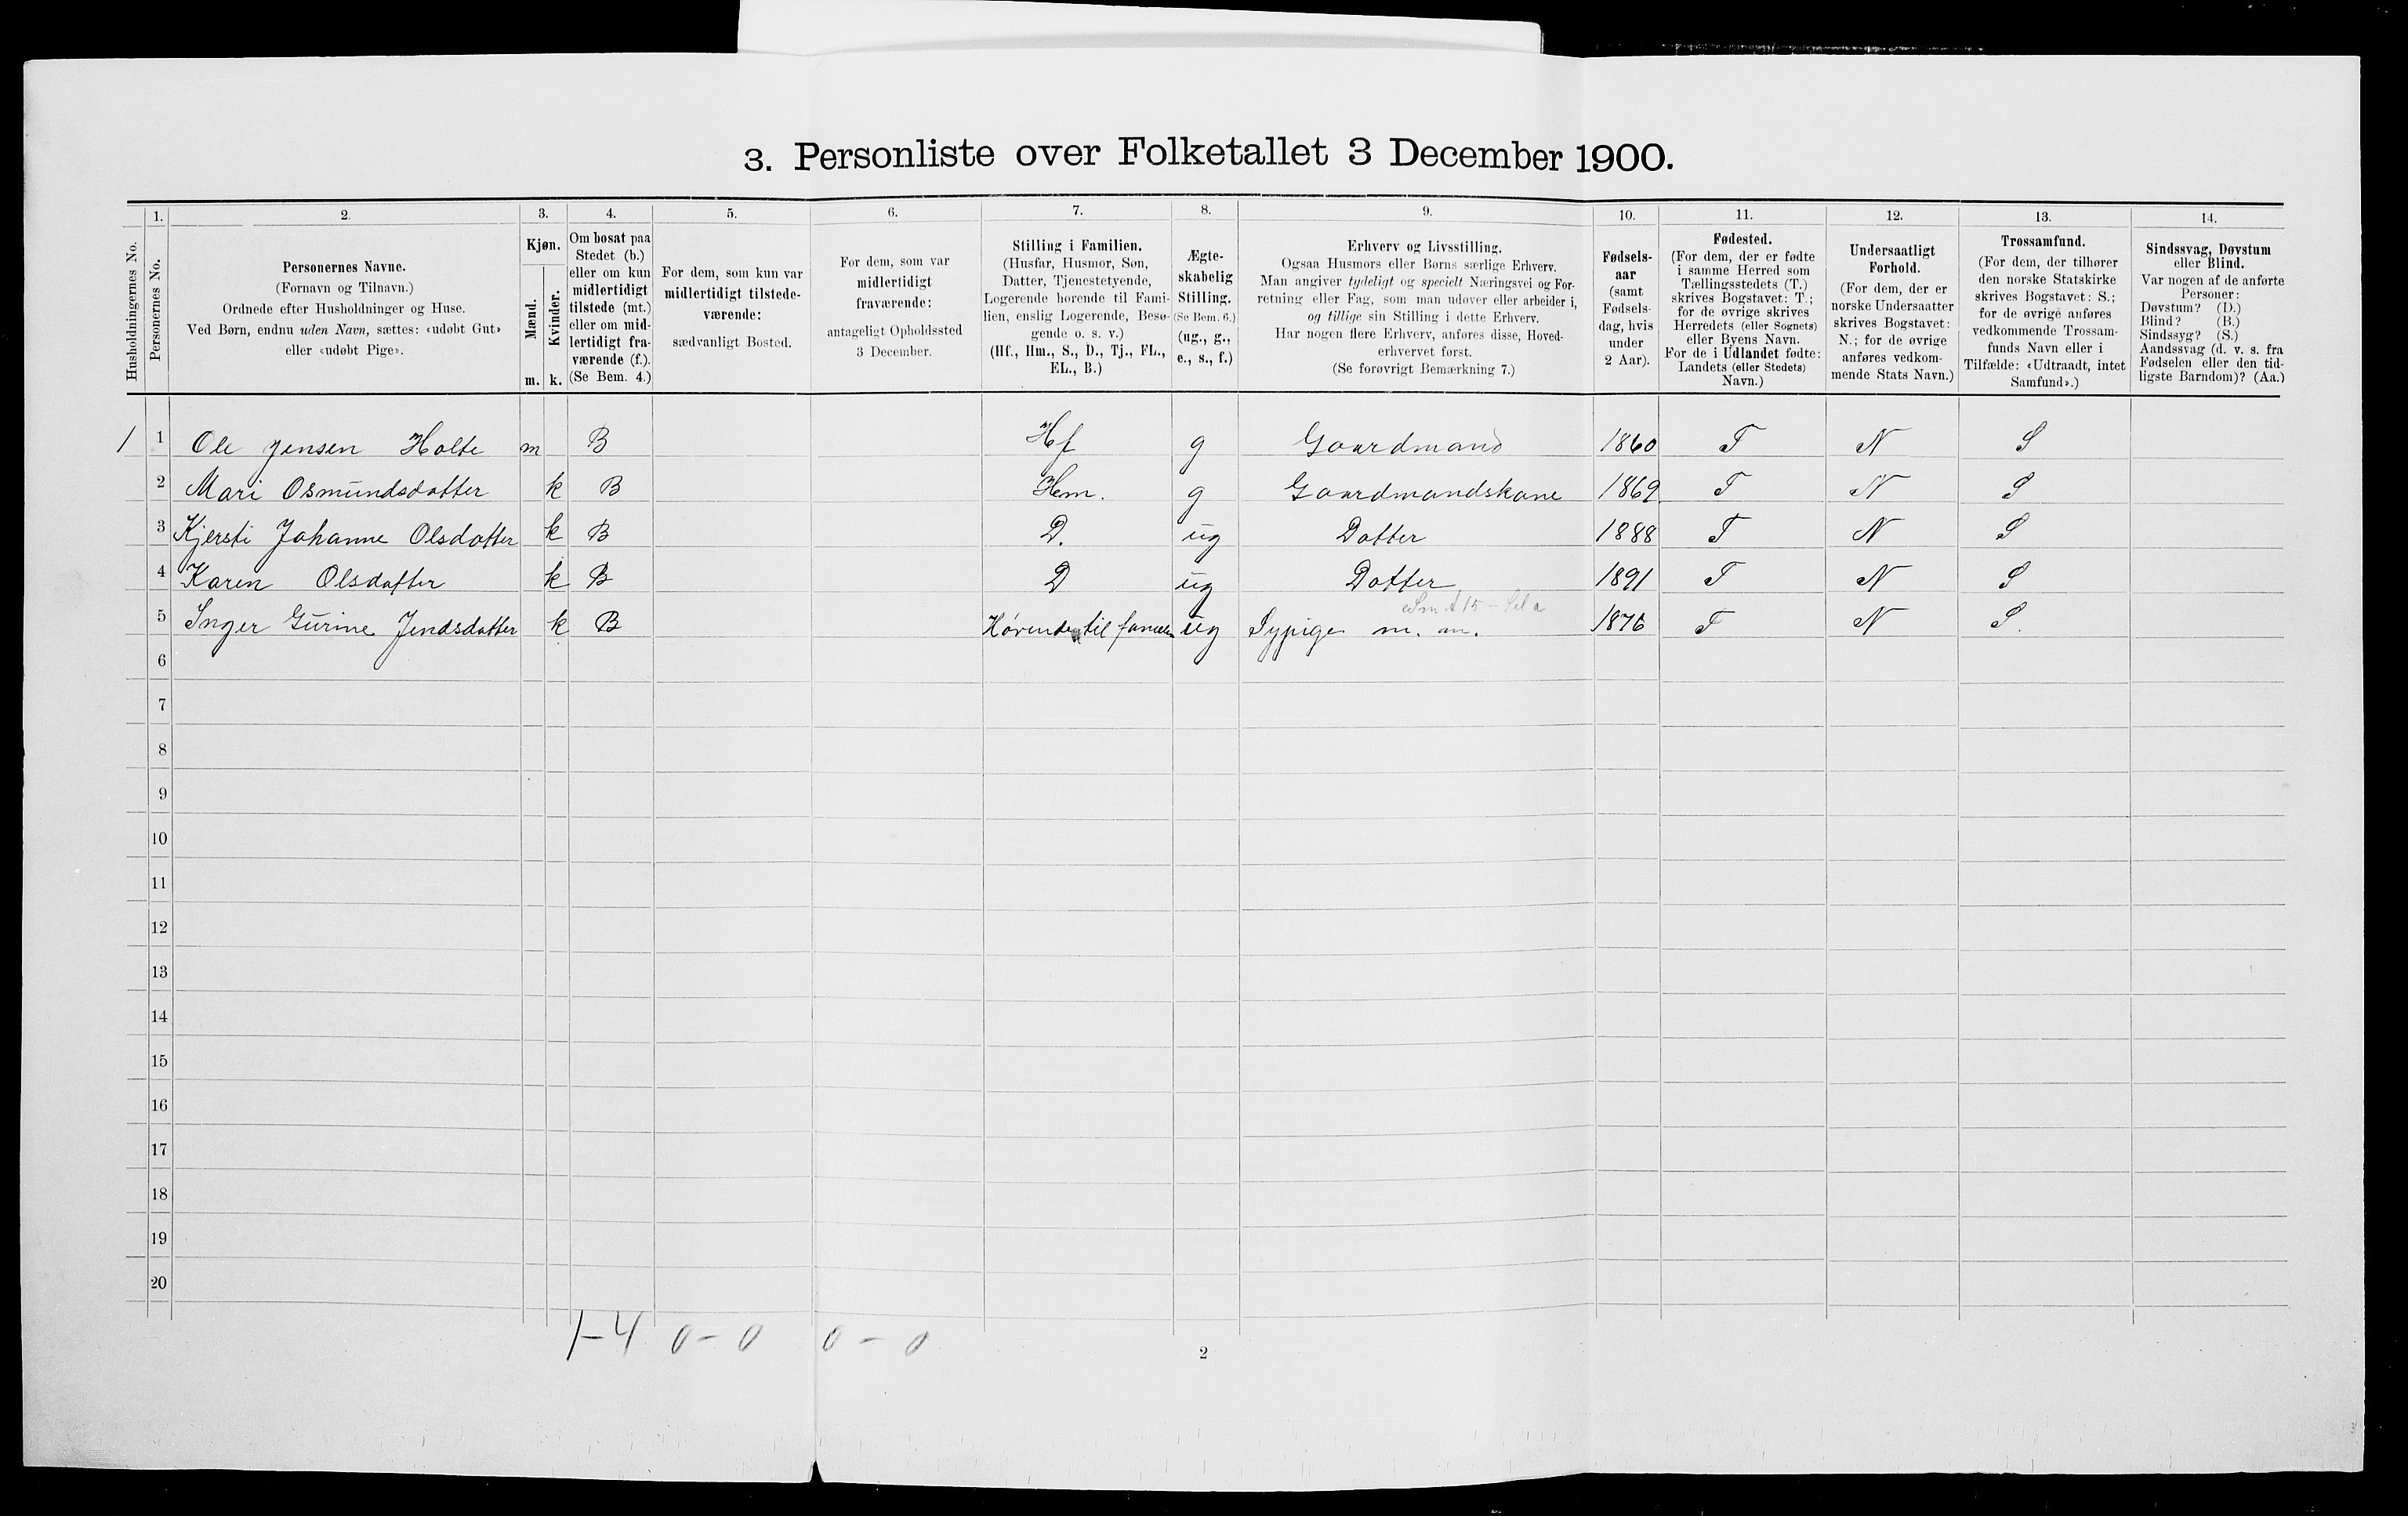 3. Personliste over Folketallet 3 December 1900.
Husholdningernes No.
1. Personernes No.
2. Personernes Navne.
(Fornavn og Tilnavn.)
Ordnede efter Husholdninger og Huse.
Ved Børn, endnu uden Navn, sættes: «udøbt Gut»
eller «udøbt Pige».
3. Kjøn.
Mænd. m.
Kvinder. k.
4. Om bosat paa
Stedet (b.)
eller om kun
midlertidigt
tilstede (mt.)
eller om mid-
lertidigt fra-
værende (f.).
(Se Bem. 4.)
5. For dem, som kun var
midlertidigt tilstede-
værende:
sædvanligt Bosted.
6. For dem, som var
midlertidigt
fraværende:
antageligt Opholdssted
3 December.
7. Stilling i Familien.
(Husfar, Husmor, Søn,
Datter, Tjenestetyende,
Logerende hørende til Fami-
lien, enslig Logerende, Besø-
gende o. s. v.)
(Hf., Hm., S., D., Tj., FL.,
EL., B.)
8. Ægte-
skabelig
Stilling.
(Se Bem. 6.)
(ug., g.,
e., s., f.)
9. Erhverv og Livsstilling.
Ogsaa Husmors eller Børns særlige Erhverv.
Man angiver tydeligt og specielt Næringsvei og For-
retning eller Fag, som man udøver eller arbeider i,
og tillige sin Stilling i dette Erhverv.
Har nogen flere Erhverv, anføres disse, Hoved-
erhvervet først.
(Se forøvrigt Bemærkning 7.)
10. Fødsels-
aar
(samt
Fødsels-
dag, hvis
under
2 Aar).
11. Fødested.
(For dem, der er fødte
i samme Herred som
Tællingsstedets (T.)
skrives Bogstavet: T.;
for de øvrige skrives
Herredets (eller Sognets)
eller Byens Navn.
For de i Udlandet fødte:
Landets (eller Stedets)
Navn.)
12. Undersaatligt
Forhold.
(For dem, der er
norske Undersaatter
skrives Bogstavet:
N.; for de øvrige
anføres vedkom-
mende Stats Navn.)
13. Trossamfund.
(For dem, der tilhører
den norske Statskirke
skrives Bogstavet: S.;
for de øvrige anføres
vedkommende Trossam-
funds Navn eller i
Tilfælde: «Udtraadt, intet
Samfund».)
14. Sindssvag, Døvstum
eller Blind.
Var nogen af de anførte
Personer:
Døvstum? (D.)
Blind? (B.)
Sindssyg? (S.)
Aandssvag (d. v. s. fra
Fødselen eller den tid-
ligste Barndom)? (Aa.)
1 1 Ole Jensen Holte m B Hf g Gaardmand 1860 T N S
2 Mari Osmundsdatter k B Hm. g Gaardmandskone 1869 T N S
3 Kjersti Johanne Olsdatter k B D. ug Datter 1888 T N S
4 Karen Olsdatter k B D ug Datter 1891 T N S
5 Inger Gurine Jendsdatter k B Hørende til ug Sypige m. m. 1876 T N S.
6
7
8
9
10
11
12
13
14
15
16
17
18
19
20
1-4 0-0 0-0
2